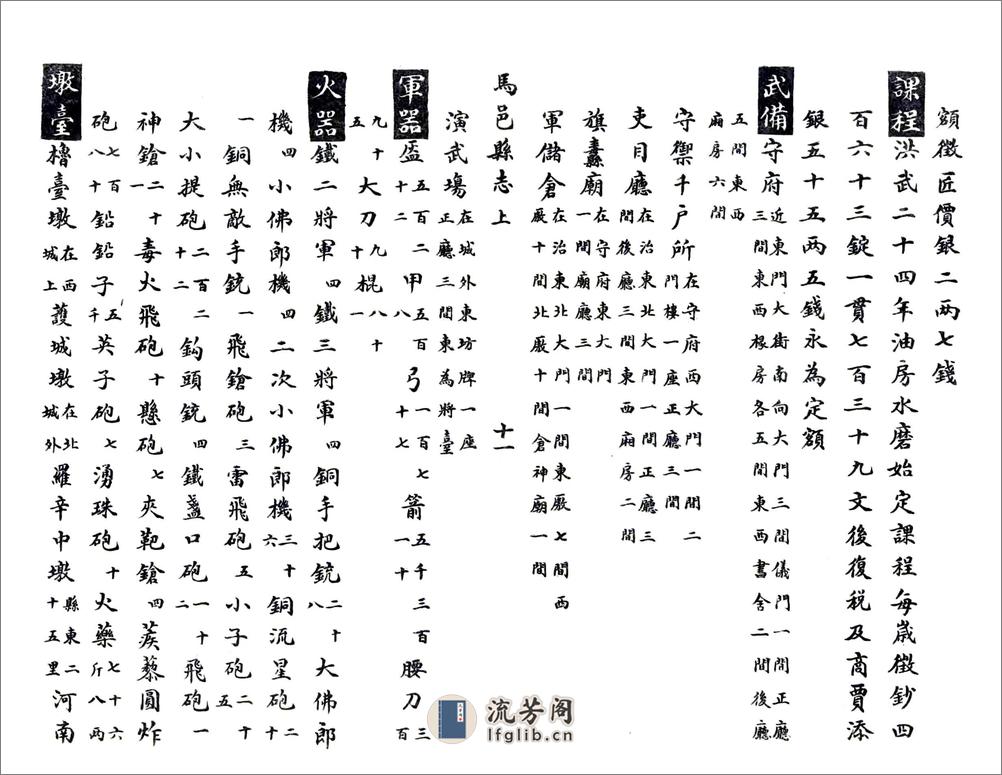 額徵匠價銀二兩七錢
課程洪武二十四年油房水磨始定課程每歲徵鈔四
百六十三錠一貫七百三十九文後復稅及商賈添
銀五十五兩五錢永為定額
武備守府近東門大街南向大門三間儀門一間正廳三間東西根房各五間東西書舍二間後廳
五間東西廂房六間
守禦千戶所在守府西大門一間二門樓一座正廳三間
吏目廳在治東北大門一間正廳三間後廳三間東西廂房二間
旗纛廟在守府東大門一間廟廳三間
軍儲倉在治東北大門一間東廒七間西廒十間北廒十間倉神廟一間
馬邑縣志上 十一
演武場在城外東坊牌一座正廳三間東為將臺
軍器盔五百二十二甲五百八弓一百七十七箭五千三百一十腰刀三百
九十五大刀九十棍八十一
火器鐵二將軍四鐵三將軍四銅手把銃二十八大佛郎
機四小佛郎機四二次小佛郎機三十六銅流星砲二十
一銅無敵手銃一飛鎗砲三雷飛砲五小子砲二十五
大小提砲二百二十二鈎頭銃四鐵盞口砲一十二飛砲一
神鎗二十一毒火飛砲十懸砲七夾靶鎗四蒺藜圓炸
砲七百八十鉛鉛子五千英子砲七湧珠砲十火藥七十六斤八兩
墩臺櫓臺墩在西城上護城墩在北城外羅辛中墩縣東二十五里河南
流芳阁
lfglib.cn